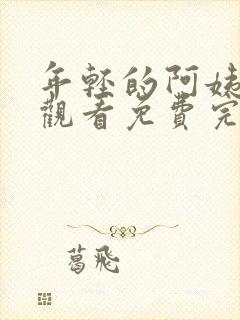 年轻的阿姨
觀看免費完
葛飛